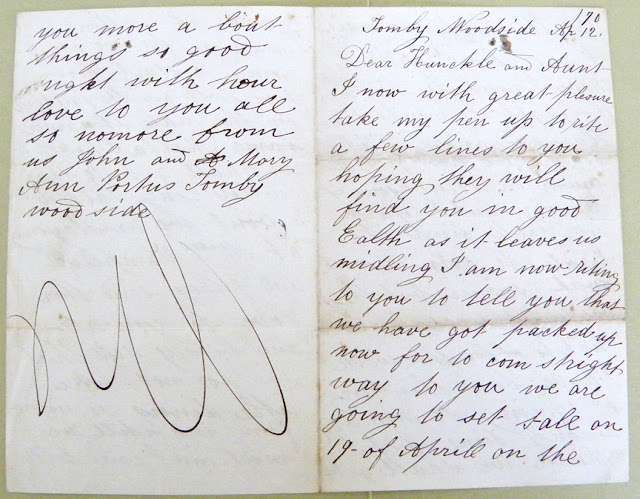 Tomby Woodside Ap 12. /70
Dear Hunckle and Aunt
I now with great plesure
take my pen up to rite
a few lines to you
hoping they will
find you in good
Ealth as it leaves us
midling I am now riting
to you to tell you that
we have got packed up
now for to com stright
way to you we are
going to set sale on
19- of Aprill on the
you more a bout
things so good
night with hour
love to you all
so nomore from
us John and Mary
Ann Portus Tomby
wood side